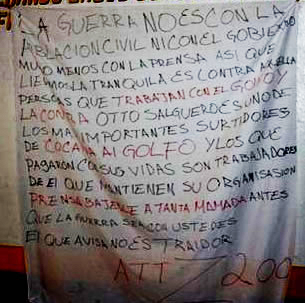 LA GUERRA NO ES CON LA
POBLACION CIVIL NI CON EL GOBIERNO
MUYO MENOS CON LA PRENSA ASI QUE
LLEVENSLA TRANQUILA ES CONTRA AKELLA
PERSOAS QUE TRABAJAN CON EL GOLFO Y
LA CONTRA OTTO SALGUERO ES UNO DE
LOS MAS IMPORTANTES SURTIDORES
DE COCAINA AL GOLFO Y LOS QUE
PAGARON CO SUS VIDAS SON TRABAJADORES
DE EL QUE MANTIENEN SU ORGANISASION
PRENSA BAJENLE A TANTA MAMADA ANTES
QUE LA GUERRA SEA CON USTEDES
El QUE AVISA NO ES TRAIDOR
ATT Z 200